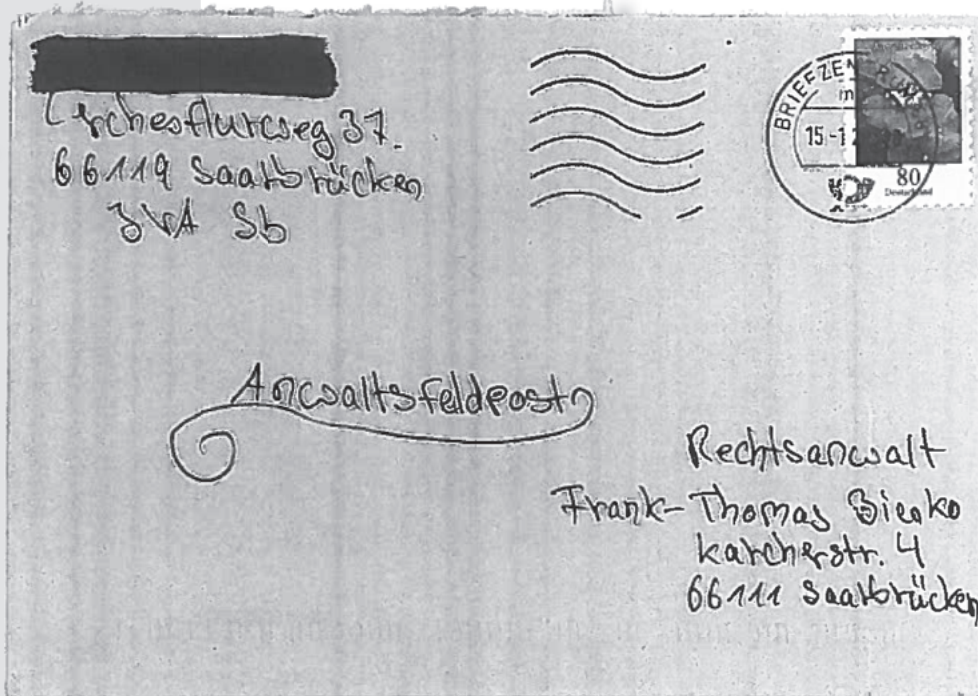 Lerchesflurweg 37.
66119 Saarbrücken
JVA Sb
BRIEFZEN
15.-1
80
Deutschland
Anwaltsfeldpost
Rechtsanwalt
Frank-Thomas
Karcherstr. 4
66111 Saarbrücken